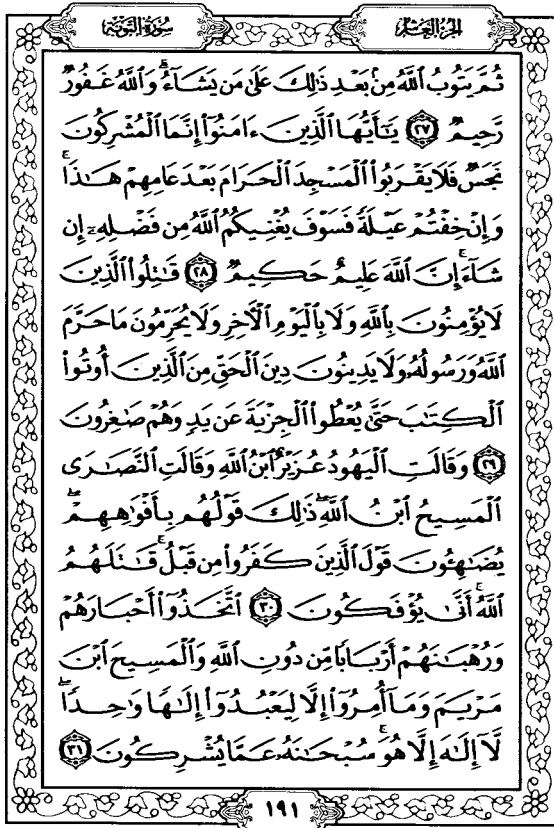 سُورَةُ التَّوْبَةِ
الجُزْءُ العَاشِرُ
ثُمَّ يَتُوبُ ٱللَّهُ مِنۢ بَعْدِ ذَٰلِكَ عَلَىٰ مَن يَشَآءُۗ وَٱللَّهُ غَفُورٌ
رَّحِيمٌ ٢٧ يَٰٓأَيُّهَا ٱلَّذِينَ ءَامَنُوٓا۟ إِنَّمَا ٱلْمُشْرِكُونَ
نَجَسٌ فَلَا يَقْرَبُوا۟ ٱلْمَسْجِدَ ٱلْحَرَامَ بَعْدَ عَامِهِمْ هَٰذَاۚ
وَإِنْ خِفْتُمْ عَيْلَةً فَسَوْفَ يُغْنِيكُمُ ٱللَّهُ مِن فَضْلِهِۦٓ إِن
شَآءَۚ إِنَّ ٱللَّهَ عَلِيمٌ حَكِيمٌ ٢٨ قَٰتِلُوا۟ ٱلَّذِينَ
لَا يُؤْمِنُونَ بِٱللَّهِ وَلَا بِٱلْيَوْمِ ٱلْءَاخِرِ وَلَا يُحَرِّمُونَ مَا حَرَّمَ
ٱللَّهُ وَرَسُولُهُۥ وَلَا يَدِينُونَ دِينَ ٱلْحَقِّ مِنَ ٱلَّذِينَ أُوتُوا۟
ٱلْكِتَٰبَ حَتَّىٰ يُعْطُوا۟ ٱلْجِزْيَةَ عَن يَدٍ وَهُمْ صَٰغِرُونَ
٢٩ وَقَالَتِ ٱلْيَهُودُ عُزَيْرٌ ٱبْنُ ٱللَّهِ وَقَالَتِ ٱلنَّصَٰرَى
ٱلْمَسِيحُ ٱبْنُ ٱللَّهِۖ ذَٰلِكَ قَوْلُهُم بِأَفْوَٰهِهِمْۖ
يُضَٰهِـُٔونَ قَوْلَ ٱلَّذِينَ كَفَرُوا۟ مِن قَبْلُۚ قَٰتَلَهُمُ
ٱللَّهُۚ أَنَّىٰ يُؤْفَكُونَ ٣٠ ٱتَّخَذُوٓا۟ أَحْبَارَهُمْ
وَرُهْبَٰنَهُمْ أَرْبَابًا مِّن دُونِ ٱللَّهِ وَٱلْمَسِيحَ ٱبْنَ
مَرْيَمَ وَمَآ أُمِرُوٓا۟ إِلَّا لِيَعْبُدُوٓا۟ إِلَٰهًا وَٰحِدًاۖ
لَّآ إِلَٰهَ إِلَّا هُوَۚ سُبْحَٰنَهُۥ عَمَّا يُشْرِكُونَ ٣١
١٩١